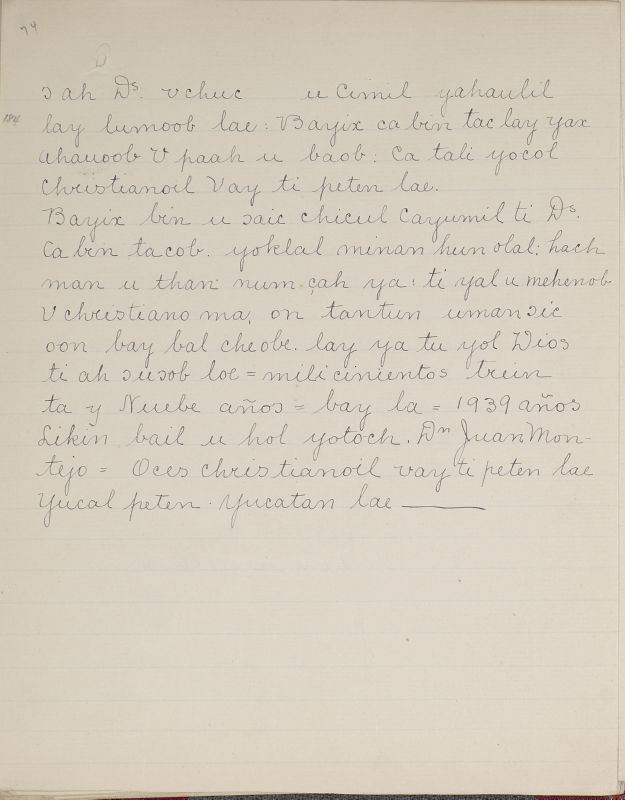 74
184
ɔ ah Ds. vchuc u Cimil yahaulil
lay lumoob lae: Bayix ca bin tac lay yax
ahauoob V paah u baob: Ca tali yocol
christianoil Vay ti peten lae.
Bayix bin u ɔaic chicul Cayumil ti Ds.
Ca bin tacob. yoklal minan hun olal: hach
man u than num çah ya: ti yal u mehenob
V christiano ma, on tantun uman ɔic
oon bay bal cheobe. lay ya tu yol Dios
ti ah ɔuɔob loe = mili cinientos trein
ta y Nuebe años = bay la = 1939 años
Likin bail u hol yotoch. Dn Juan Mon-
tejo = Oces christianoil vay ti peten lae
Yucal peten. Yucatan lae